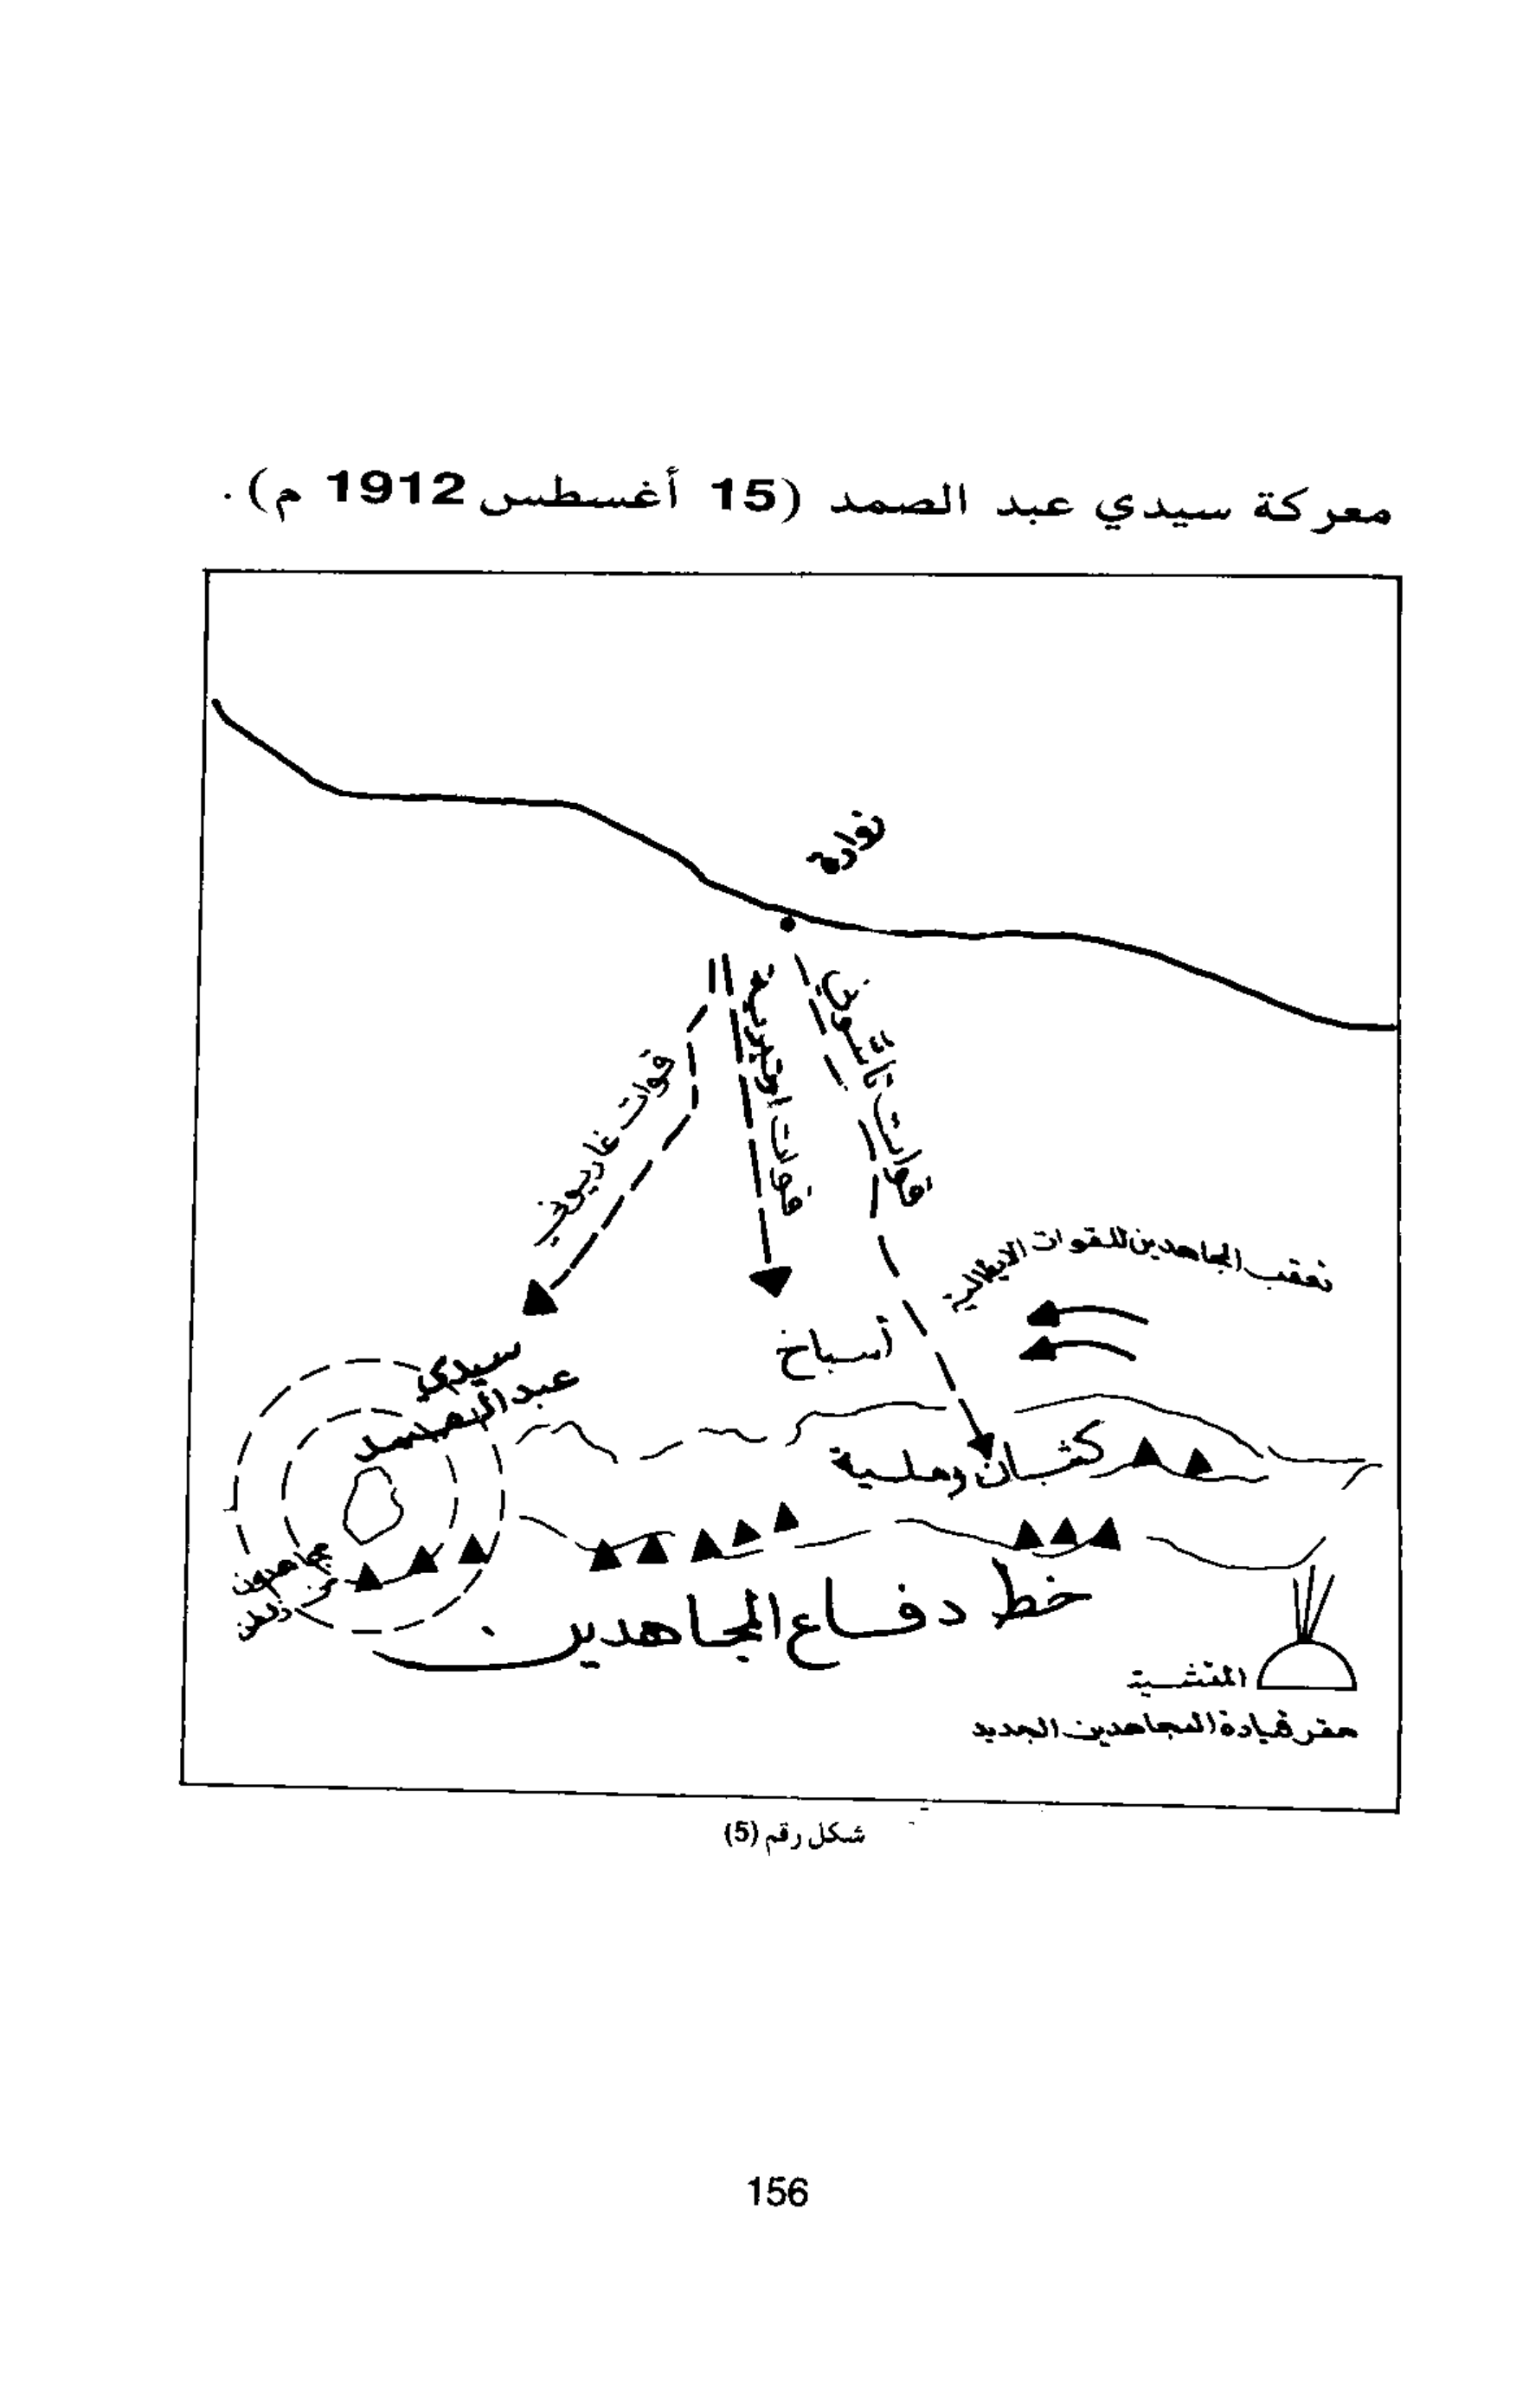 معركة سيدي عبد الصمد (15 أغسطس 1912 م).
قوات غاريوني
قوات
قوات
تعقب المجاهدين للقوات الايطالية
أسباخ
سيدي
عبد الصمد
كثبان رملية
خط دفاع المجاهدين.
مقر قيادة المجاهدين الجديد
شكل رقم (5)
156